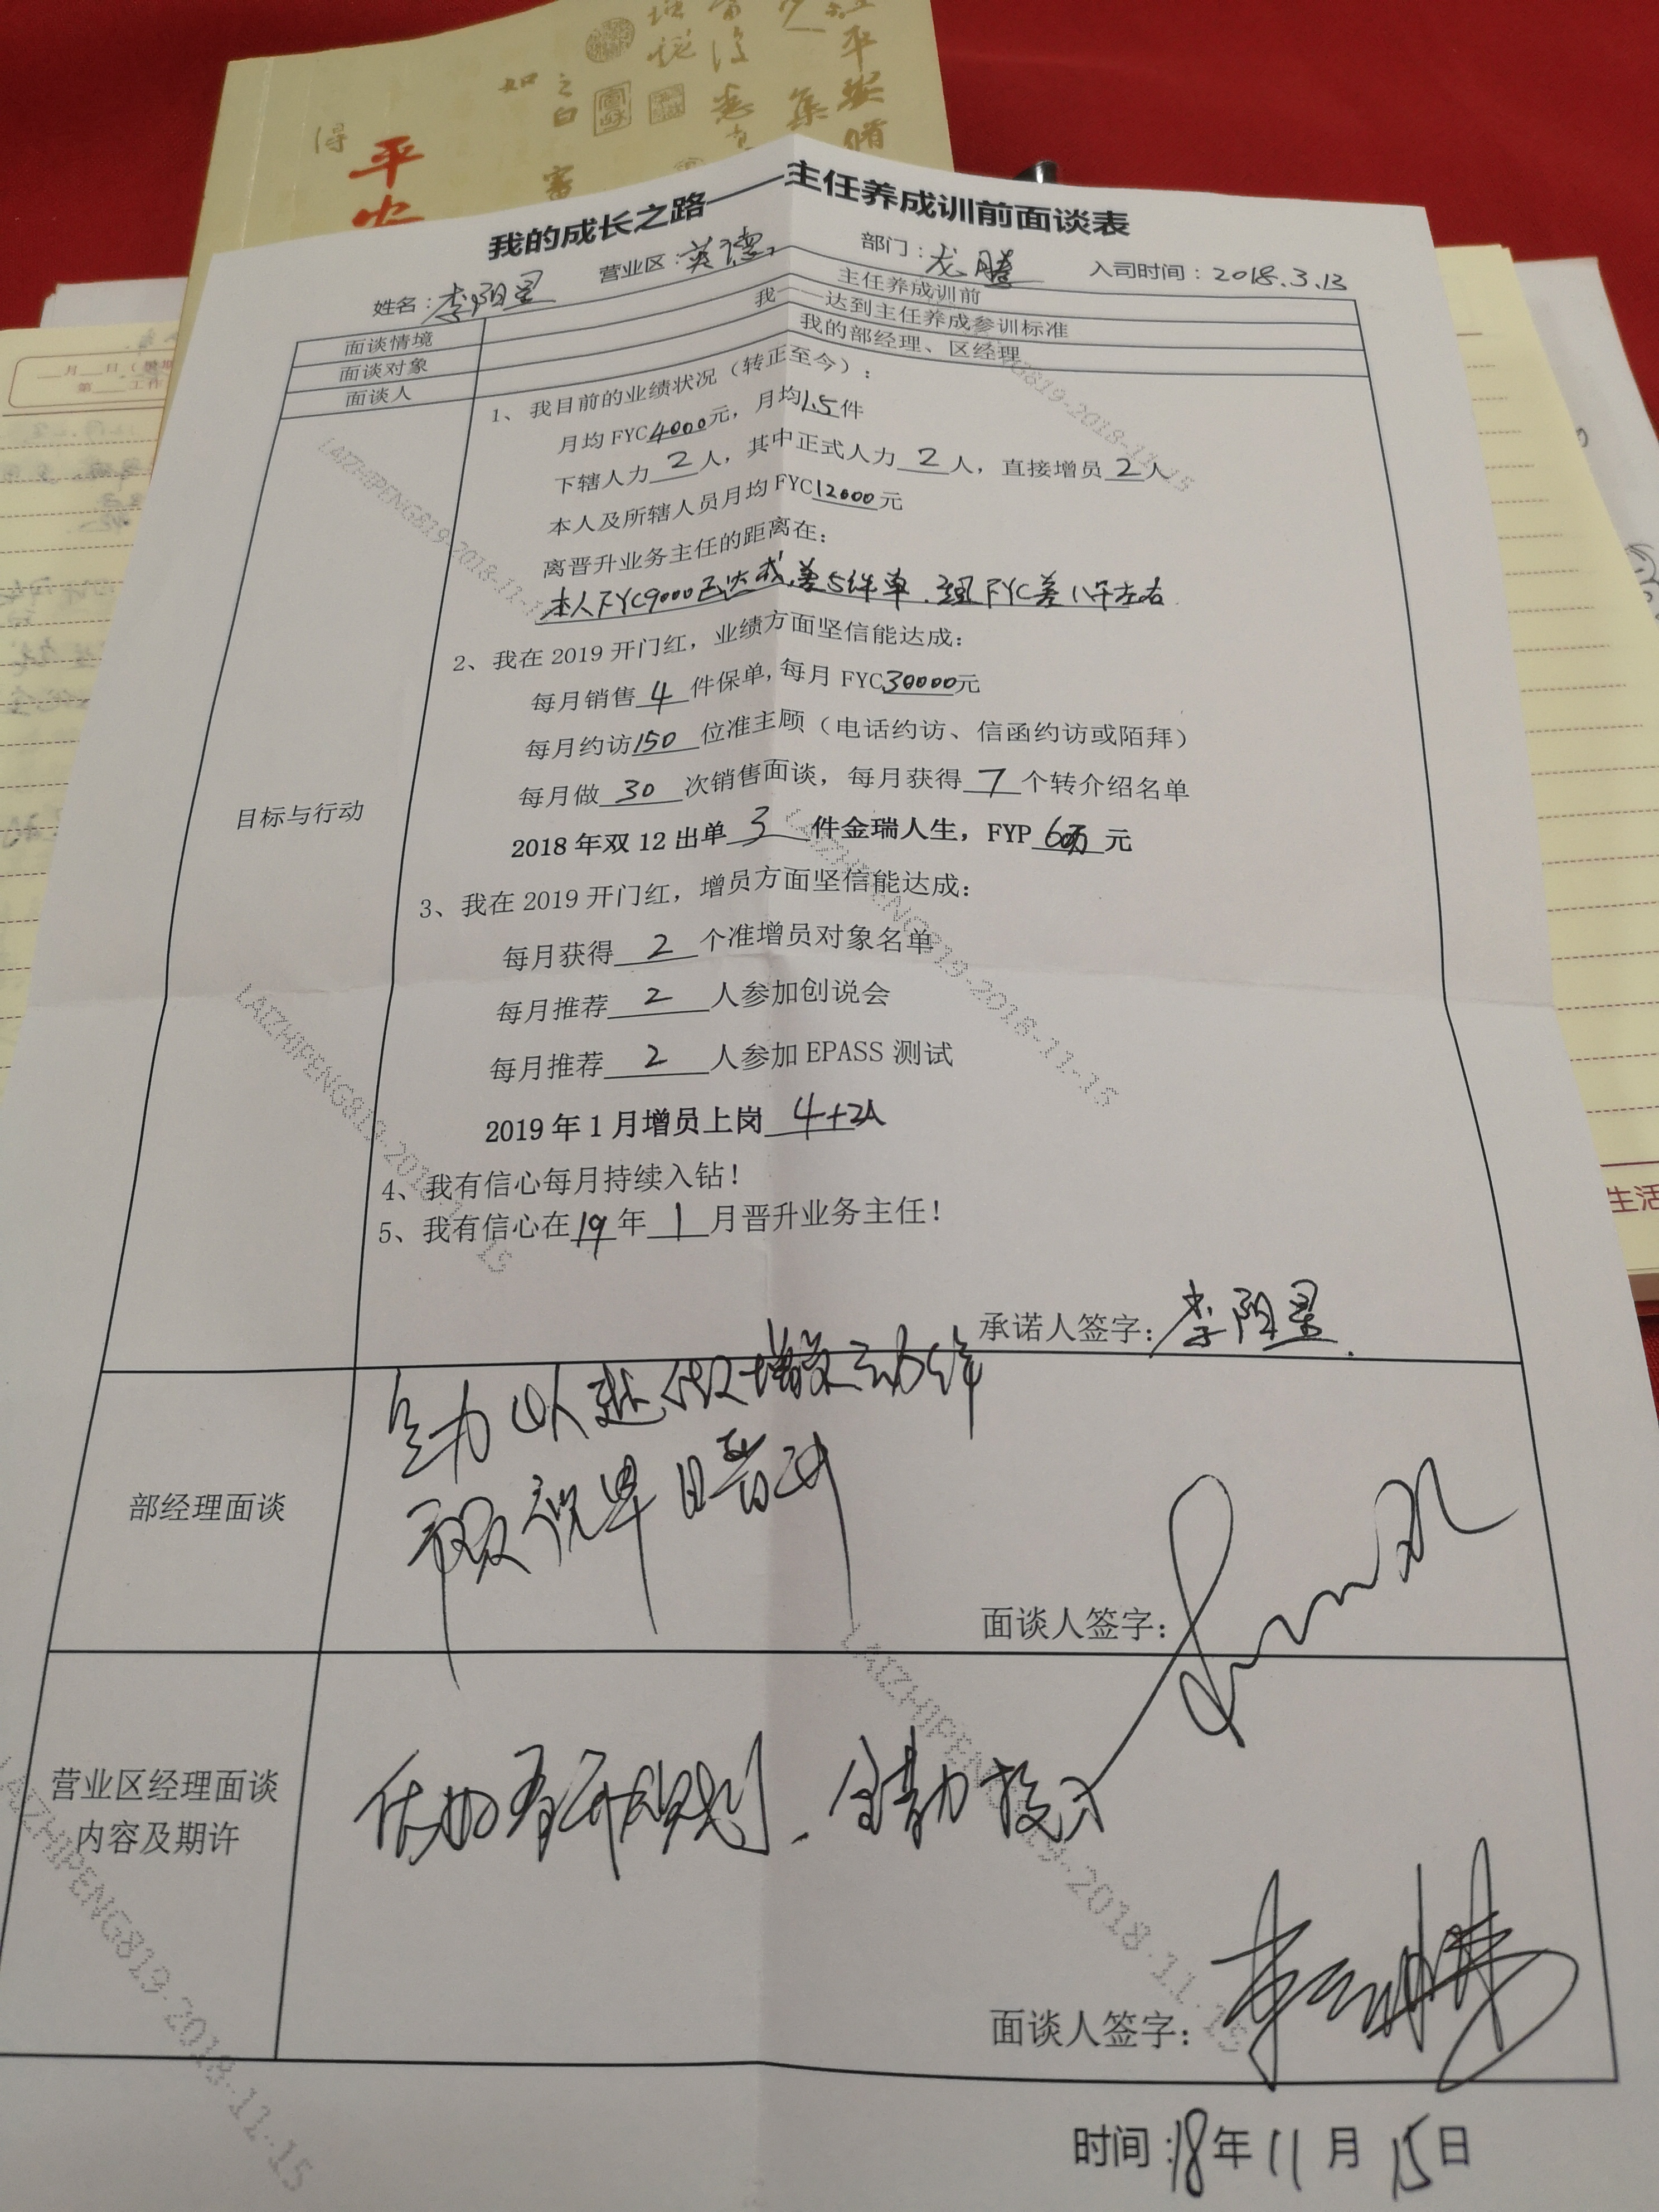 平
我的成长之路——主任养成训前面谈表
姓名：李阳星 营业区：英德 部门：龙腾 入司时间：2018.3.13
面谈情境 主任养成训前
面谈对象 我——达到主任养成参训标准
面谈人 我的部经理、区经理
目标与行动
1、我目前的业绩状况（转正至今）：
月均FYC4000元，月均1.5件
下辖人力2人，其中正式人力2人，直接增员2人
本人及所辖人员月均FYC12000元
离晋升业务主任的距离在：
本人FYC9000已达成,差5件单.组FYC差八千左右
2、我在2019开门红，业绩方面坚信能达成：
每月销售4件保单,每月FYC30000元
每月约访150位准主顾（电话约访、信函约访或陌拜）
每月做30次销售面谈，每月获得7个转介绍名单
2018年双12出单3件金瑞人生，FYP 60万元
3、我在2019开门红，增员方面坚信能达成：
每月获得2个准增员对象名单
每月推荐2人参加创说会
每月推荐2人参加EPASS测试
2019年1月增员上岗4+2人
4、我有信心每月持续入钻！
5、我有信心在19年1月晋升业务主任！
承诺人签字：李阳星
部经理面谈
全力以赴做增员动作
预祝早日晋升
面谈人签字：
营业区经理面谈
内容及期许
全力投入
面谈人签字：
时间：18年11月15日
LAIZHIPENG819-2018-11-15
生活